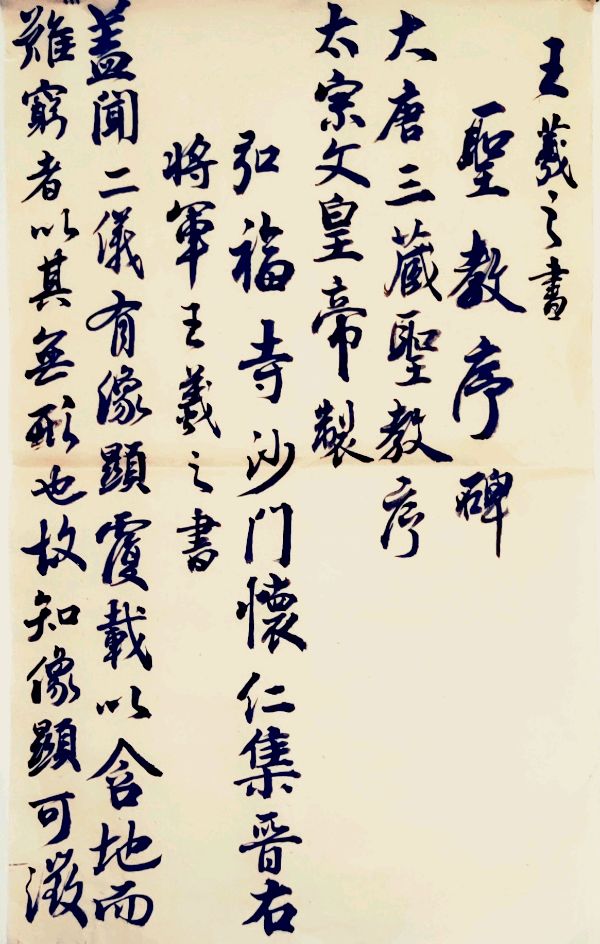 王羲之書
聖教序碑
大唐三藏聖教序
太宗文皇帝製
弘福寺沙门懷仁集晉右
將軍王羲之書
蓋聞二儀有像顯覆載以含地而
難窮者以其無形也故知像顯可徵